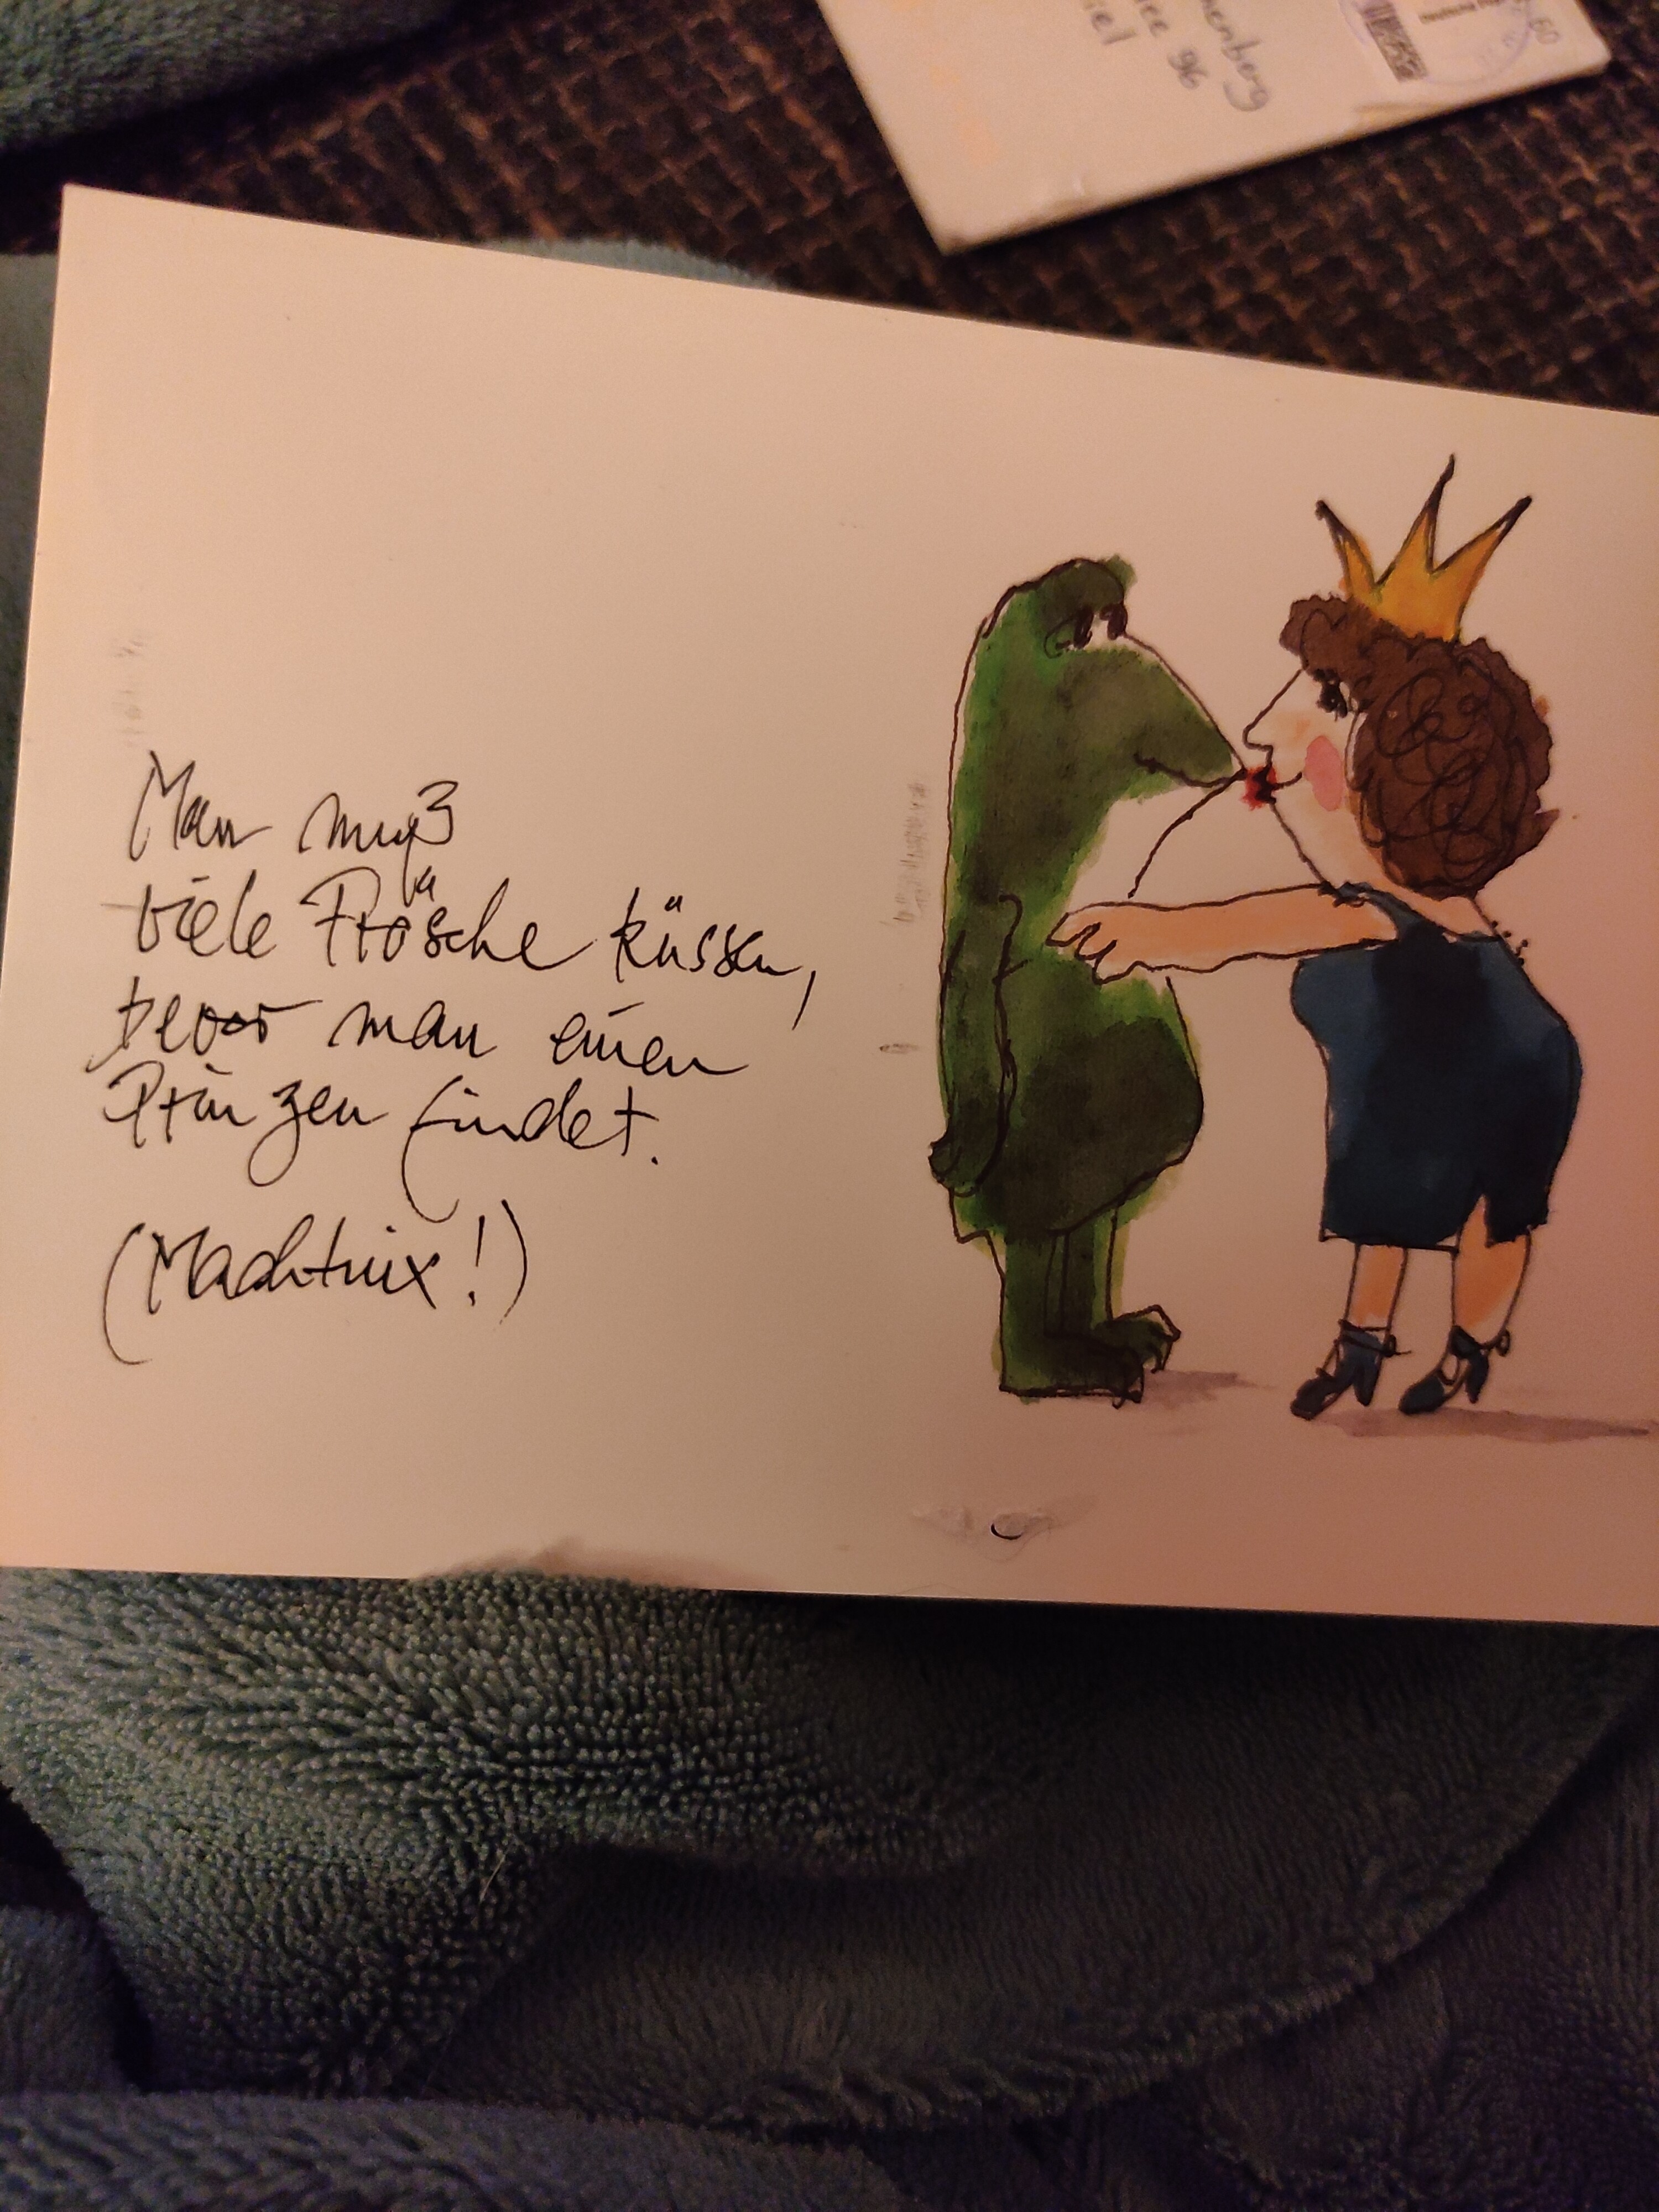 menberg
ee 96
iel
60
Man muß
viele Frösche küssen,
bevor man einen
Prinzen findet.
(Machtnix!)